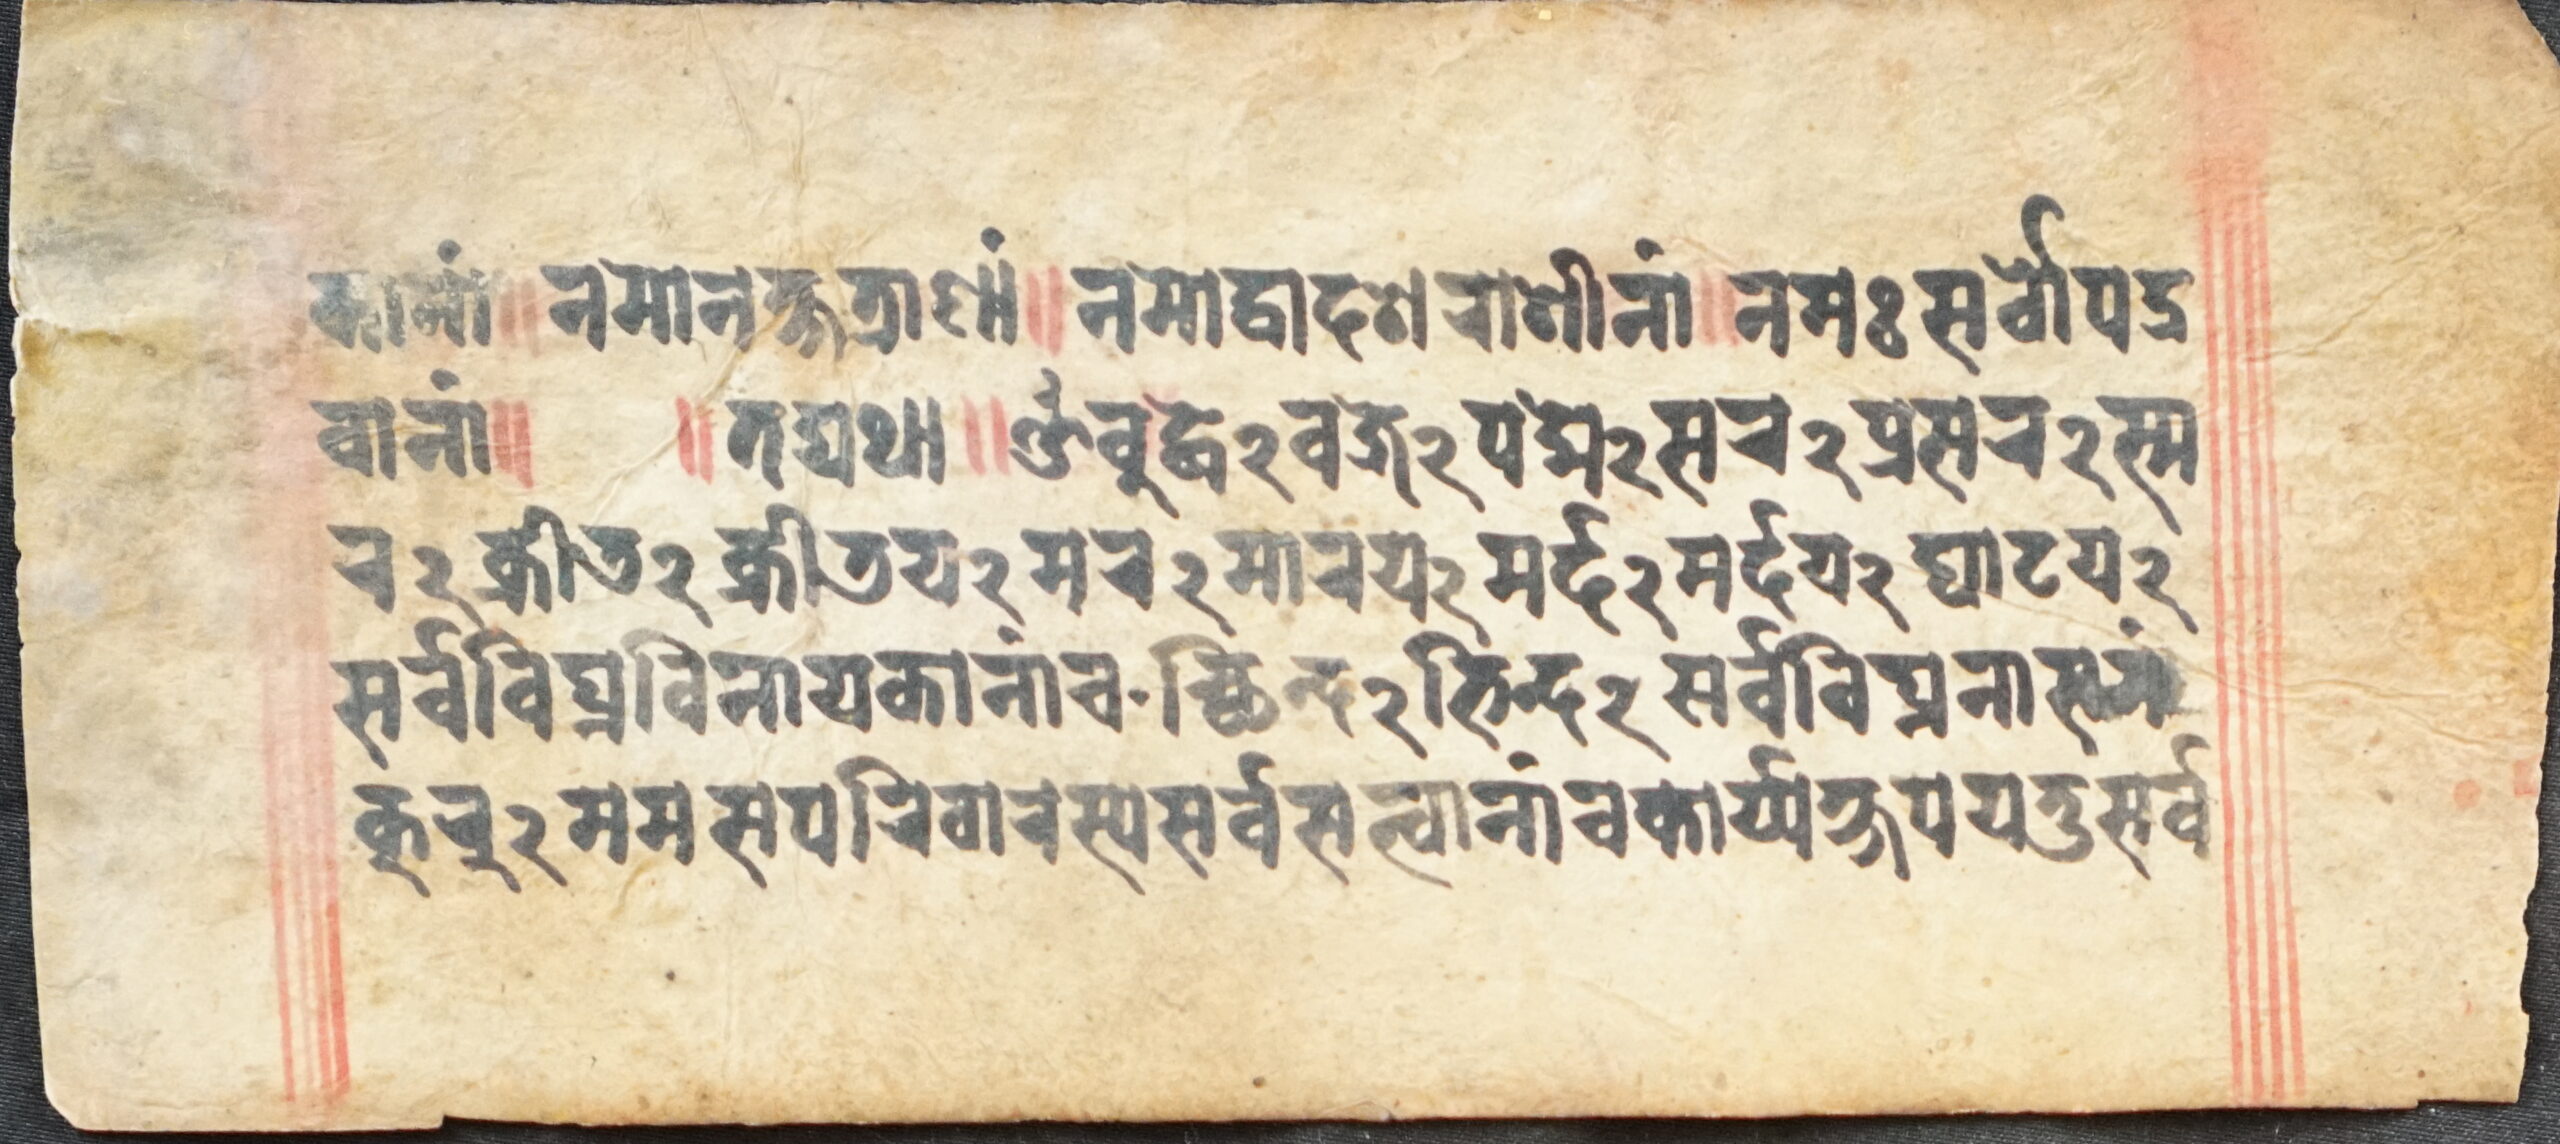 कानां॥ नमोनक्षत्राणां॥ नमोद्वादशराशीनां॥ नमः सर्वोपद्र
वानां॥ ॥तद्यथा॥ॐबुद्धे२वज्रे२पद्मे२सर२प्रसर२स्म
र२क्रीत२क्रीतय२मर२मारय२मर्द२मर्दय२घाटय२
सर्वविघ्नविनायकानांच·च्छिन्द२भिन्द२सर्वविघ्ननास्नं
कुरु२ममसपरिवारस्यसर्वसत्वानांचकार्य्यक्षपयतुसर्व